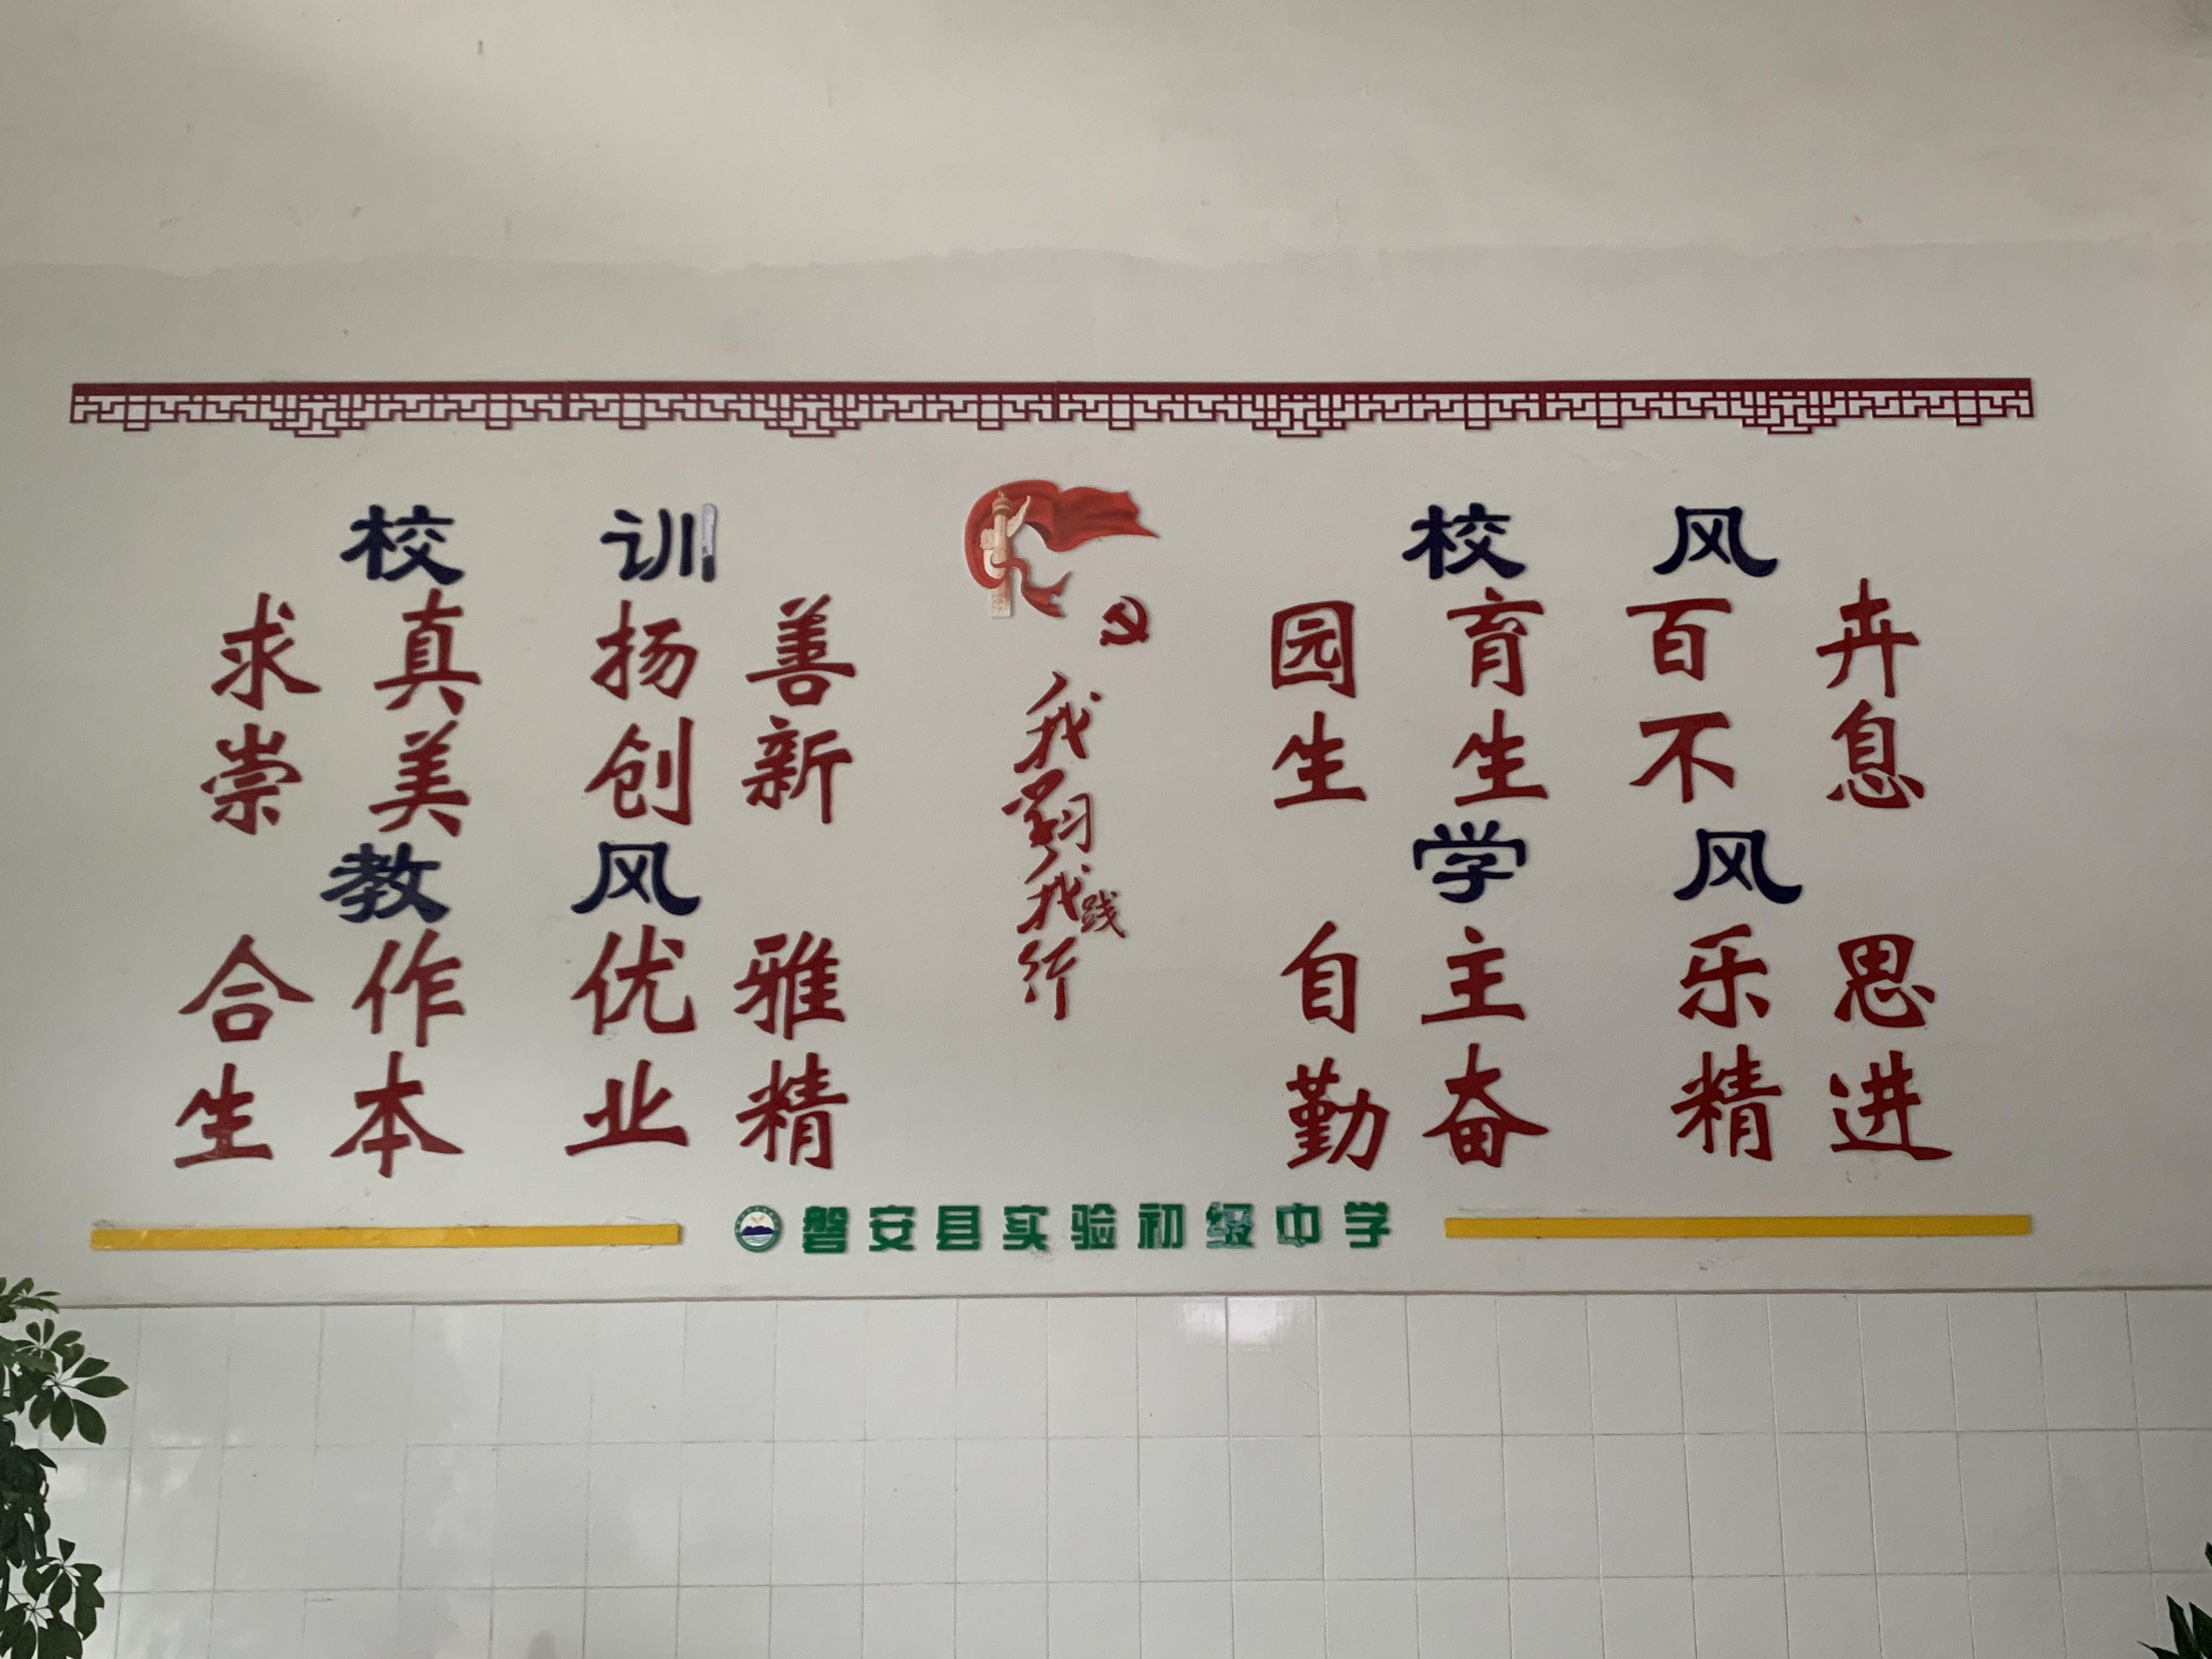 校训
求真扬善
崇美创新
教风
合作优雅
生本业精
我学习我践行
校风
园育百卉
生生不息
学风
自主乐思
勤奋精进
磐安县实验初级中学